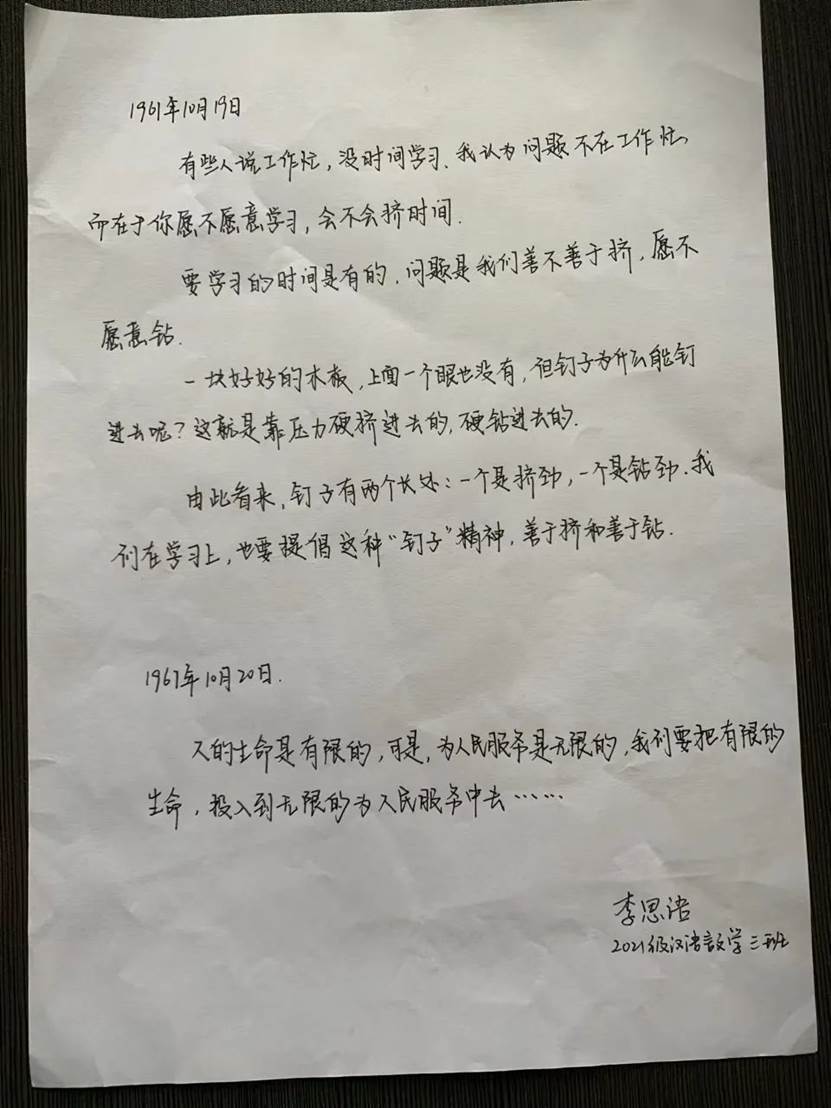 1961年10月19日
有些人说工作忙,没时间学习.我认为问题不在工作忙,
而在于你愿不愿意学习,会不会挤时间.
要学习的时间是有的,问题是我们善不善于挤,愿不
愿意钻.
一块好好的木板,上面一个眼也没有,但钉子为什么能钉
进去呢?这就是靠压力硬挤进去的,硬钻进去的.
由此看来,钉子有两个长处:一个是挤劲,一个是钻劲.我
们在学习上,也要提倡这种"钉子"精神,善于挤和善于钻.
1961年10月20日.
人的生命是有限的,可是,为人民服务是无限的,我们要把有限的
生命,投入到无限的为人民服务中去……
李思语
2021级汉语言文学三班